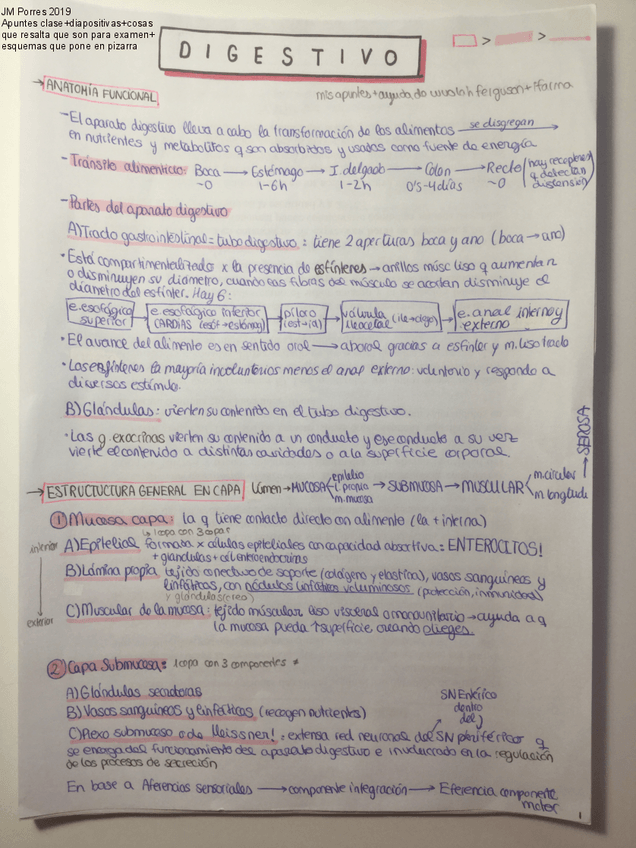 JM Porres 2019
Apuntes clase+diapositivas+cosas
que resalta que son para examen+
esquemas que pone en pizarra
> >
DIGESTIVO
mis apuntes+ayuda de wuolah ferguson+ffarma
→ ANATOMÍA FUNCIONAL
- El aparato digestivo lleva a cabo la transformación de los alimentos se disgregan →
en nutrientes y metabolitos q son absorbidos y usados como fuente de energía
- Tránsito alimenticio Boca → Estómago → I. delgado → Colon → Recto (hay receptores
~0 1-6h 1-2h 0's-4días ~0 q detectan
distensión)
- Partes del aparato digestivo
A) Tracto gastrointestinal = tubo digestivo: tiene 2 aperturas boca y ano (boca → ano)
• Está compartimentalizado x la presencia de esfínteres → anillos músc liso q aumentan
o disminuyen su diámetro, cuando esas fibras del músculo se acortan disminuye el
diámetro del esfínter. Hay 6:
e. esofágico superior → e. esofágico inferior CARDIAS (esóf→estómag) → píloro (est→id) → válvula ileocecal → e. anal interno y externo
• El avance del alimento es en sentido oral → aboral gracias a esfínter y m. liso tracto
• Los esfínteres la mayoría involuntarios menos el anal externo: voluntario y respondo a
diversos estímulo.
B) Glándulas: vierten su contenido en el tubo digestivo.
• Las g. exocrinas vierten su contenido a un conducto y ese conducto a su vez
vierte el contenido a distintas cavidades o a la superficie corporal.
→ ESTRUCTUCTURA GENERAL EN CAPA Lúmen → MUCOSA epitelio l. propia m. mucosa → SUBMUCOSA → MUSCULAR m. circular m. longitudinal → SEROSA
① Mucosa capa: la q tiene contacto directo con alimento (la + interna)
↳ 1 capa con 3 capas
interior
A) Epitelial formada x células epiteliales con capacidad absortiva = ENTEROCITOS!
+ glándulas + cél enteroendocrinas
B) Lámina propia tejido conectivo de soporte (colágeno y elastina), vasos sanguíneos y
linfáticos, con nódulos linfáticos voluminosos (protección, inmunidad)
y glándulas
exterior
C) Muscular de la mucosa: tejido múscular liso visceral o monounitario → ayuda a q
la mucosa pueda ↑superficie creando pliegues.
② Capa Submucosa: 1 capa con 3 componentes *
A) Glándulas secretoras
B) Vasos sanguíneos y linfáticos (recogen nutrientes)
SN Entérico
dentro
del
C) Plexo submucoso o de Meissner!: extensa red neuronal del SN periférico q
se encarga del funcionamiento del aparato digestivo e involucrado en la regulación
de los procesos de secreción
En base a Aferencias sensoriales → componente integración → Eferencia componente
motor
1